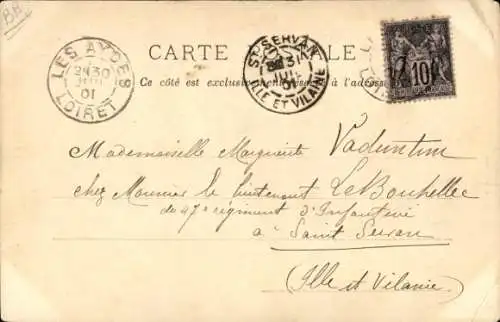 BB
LES AYDES
2E 30
JUIL
01
LOIRET
CARTE POSTALE
ST SERVAN
31
JUIL
01
ILLE ET VILAINE
10
Ce côté est exclusivement réservé à l'adresse
Mademoiselle Marguerite
chez Monsieur le lieutenant Le Bouhellec
du 47e régiment d'Infanterie
à Saint Servan
(Ille et Vilaine)